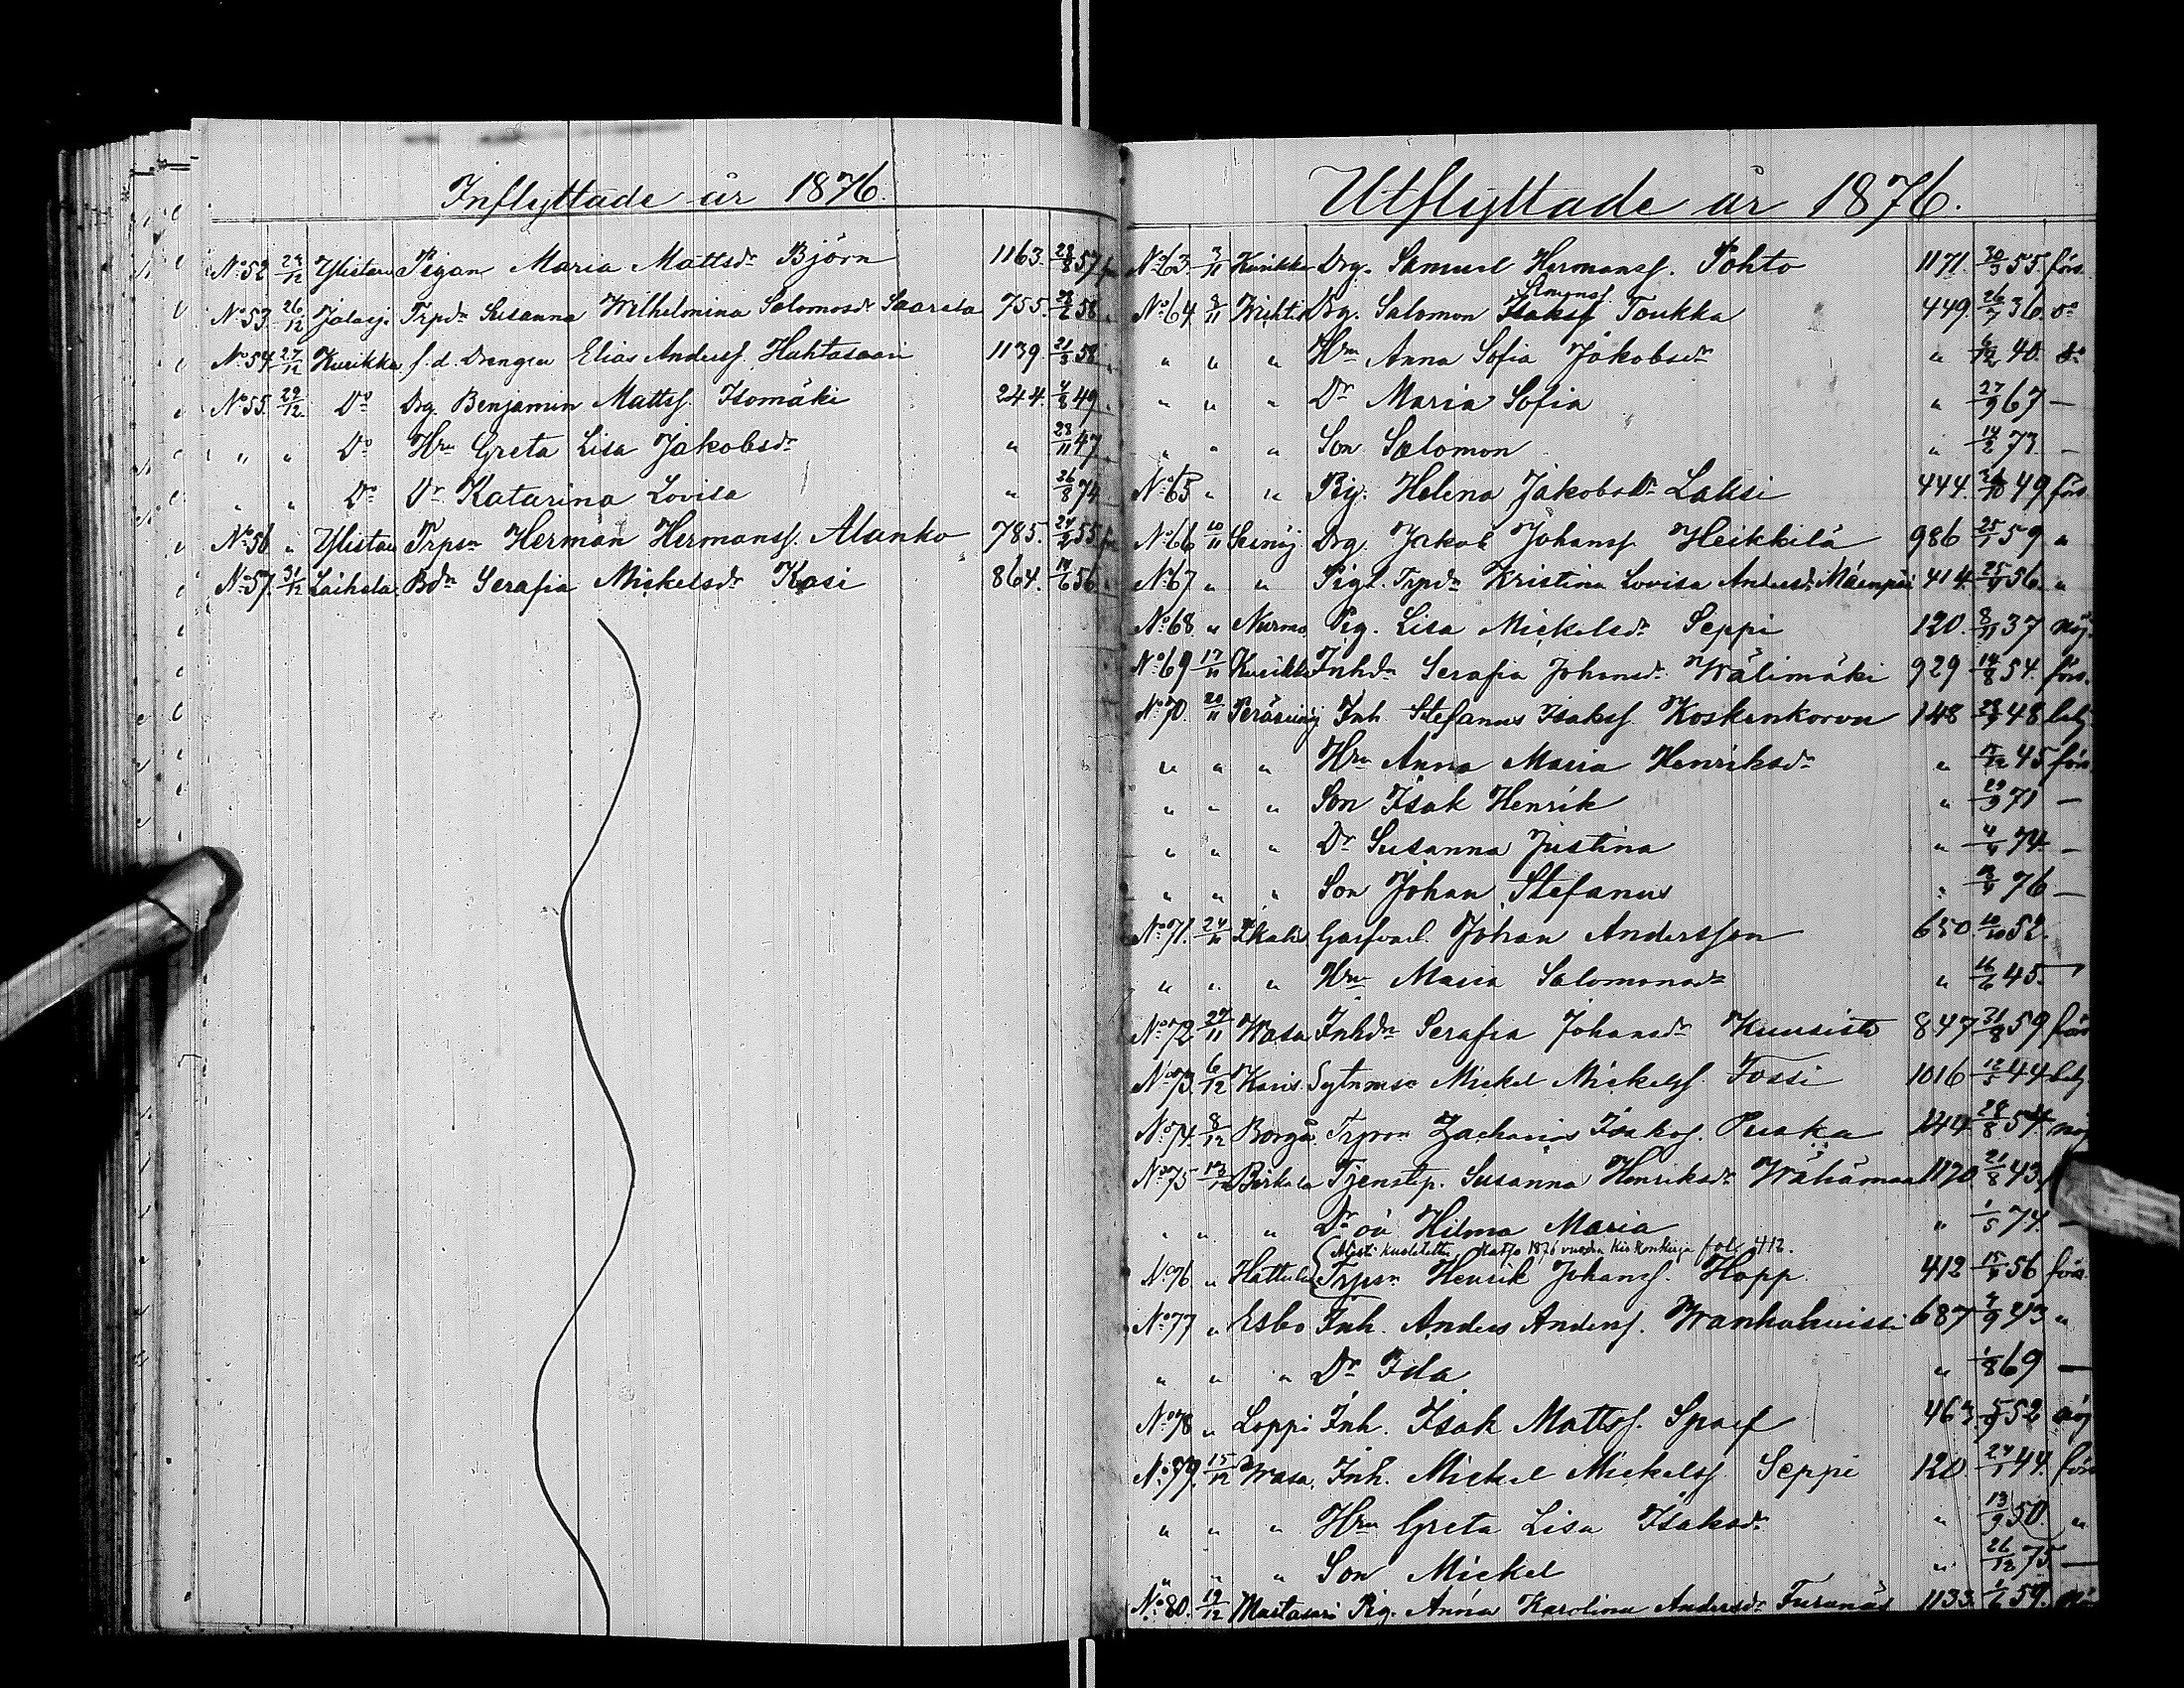 Inflyttade år 1876.
No 52 29/12 Ylistaro Pigan Maria Mattsdr Björn 1163. 23/8 57
No 53. 26/12 Jalasj. Trpdr Susanna Wilhelmina Salomosdr Saarela 755. 58
No 54. 27/12 Kurikka f.d. Drengen Elias Anderss. Huhtasaari 1139. 21/3 58
No 55. 29/12 Do Drg. Benjamin Mattss. Isomäki 244. 4/8 49
" " Do Hru Greta Lisa Jakobsdr " 28/11 47
" " Do Dr Katarina Lovisa " 26/8 74
No 56 " Ylistaro Trpsn Herman Hermanss. Alanko 785. 55
No 57. 31/12 Laihela Bdr Serafia Mickelsdr Kasi 864. 56
Utflyttade år 1876.
No 63. 3/11 Kurikka Drg. Samuel Hermanss. Pohto 1171. 30/3 55. förs.
Simonss.
No 64. 8/11 Wichtis Drg. Salomon Isakss Toukka 449. 26/7 36. do
" " " Hru Anna Sofia Jakobsdr " 6/12 40. do
" " " Dr Maria Sofia " 27/9 67 —
" " " Son Salomon " 14/2 73 —
No 65 " " Pig. Helena Jakobsdr Laksi 444. 26/10 49 förs.
No 66 10/11 Seinäj Drg. Jakob Johanss. Heikkilä 986 25/1 59 "
No 67 " " Pigt. Trpdr Kristina Lovisa Andersdr Mäenpää 414 56 "
No 68. " Nurmo Pig. Lisa Mickelsdr Seppi 120. 8/11 37 nöj.
No 69 17/11 Kurikka Inhdr Serafia Johansdr Wälimäki 929 14/8 54. förs.
No 70. 20/11 Peräseinäj Inh. Stefanus Isakss. Koskenkorva 148 48 belj
" " " Hru Anna Maria Henriksdr " 45 förs.
" " " Son Isak Henrik " 29/9 71 —
" " " Dr Susanna Justina " 74 —
" " " Son Johan Stefanus " 76 —
No 71. 24/11 Ikalis Garfvael. Johan Andersson 650. 10/10 52.
" " " Hru Maria Salomonsdr " 16/6 45. —
No 72 29/11 Wasa Inhdr Serafia Johansdr Kuusisto 847 21/8 59 förs
No 73. 6/12 Karis. Sytnmse Mickel Mickelss. Tossi 1016 44 belj.
No 74. 8/12 Borgå Trpsn Zacharias Isakss. Puska 28/8 54 nöj
No 75 13/12 Birkala Tjenstp. Susanna Henriksdr Wähämaa 1120 21/8 43.
" " " Dr oä Hilma Maria " 1/5 74. —
Katso 1876 vuoden fol. 412.
No 76. " Hattula Trpsn Henrik Johanss. Hopp. 412 56 förs.
No 77 " Esbo Inh. Anders Anderss. Wanhahuissi 687 43 "
" " " Dr Ida " 1/8 69 —
No 78 " Loppi Inh. Isak Mattss. Sparf 463 52 nöj
No 79. 15/12 Wasa. Inh. Mickel Mickelss. Seppi 120. 44. förs
" " " Hru Greta Lisa Isaksdr " 13/9 50. "
" " " Son Mickel " 26/12 75. —
No 80. 19/12 Mustasari Pig. Anna Karolina Andersdr Furunäs 1133. 59.